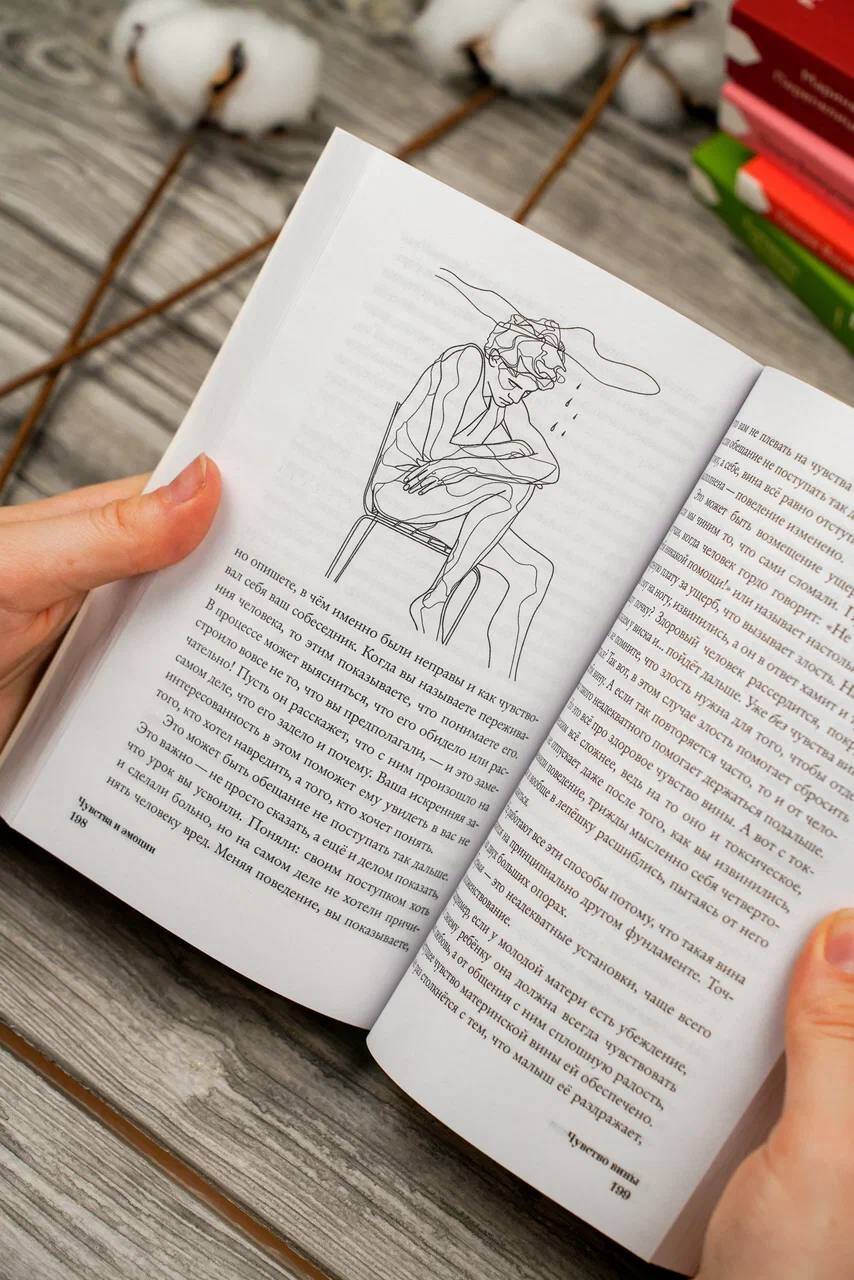 но опишете, в чём именно были неправы и как чувство-
вал себя ваш собеседник. Когда вы называете пережива-
ния человека, то этим показываете, что понимаете его.
В процессе может выясниться, что его обидело или рас-
строило вовсе не то, что вы предполагали, — и это заме-
чательно! Пусть он расскажет, что с ним произошло на
самом деле, что его задело и почему. Ваша искренняя за-
интересованность в этом поможет ему увидеть в вас не
того, кто хотел навредить, а того, кто хочет понять.
Это может быть обещание не поступать так дальше.
Это важно — не просто сказать, а ещё и делом показать,
что урок вы усвоили. Поняли: своим поступком хоть
и сделали больно, но на самом деле не хотели причи-
нять человеку вред. Меняя поведение, вы показываете,
Чувства и эмоции
198
не плевать на чувства
обещание не поступать так
а себе, вина всё равно отступ
— поведение изменено.
Это может быть возмещение ущер
мы чиним то, что сами сломали.
когда человек гордо говорит: «Не
никакой помощи!» или называет настоль
плату за ущерб, что вызывает злость.
на ногу, извинились, а он в ответ хамит и
Здоровый человек рассердится,
у виска и... пойдёт дальше. Уже без чувства
помните, что злость нужна для того, чтобы отде
Так вот, в этом случае злость помогает сбросить
вину. А если так повторяется часто, то и от чело-
неадекватного помогает держаться подальше.
это всё про здоровое чувство вины. А вот с ток-
всё сложнее, ведь на то оно и токсическое,
отпускает даже после того, как вы извинились,
поведение, трижды мысленно себя четверто-
вообще в лепёшку расшиблись, пытаясь от него
работают все эти способы потому, что такая вина
на принципиально другом фундаменте. Точ-
двух больших опорах.
— это неадекватные установки, чаще всего
если у молодой матери есть убеждение,
ребёнку она должна всегда чувствовать
а от общения с ним сплошную радость,
чувство материнской вины ей обеспечено.
столкнётся с тем, что малыш её раздражает,
Чувство вины
199